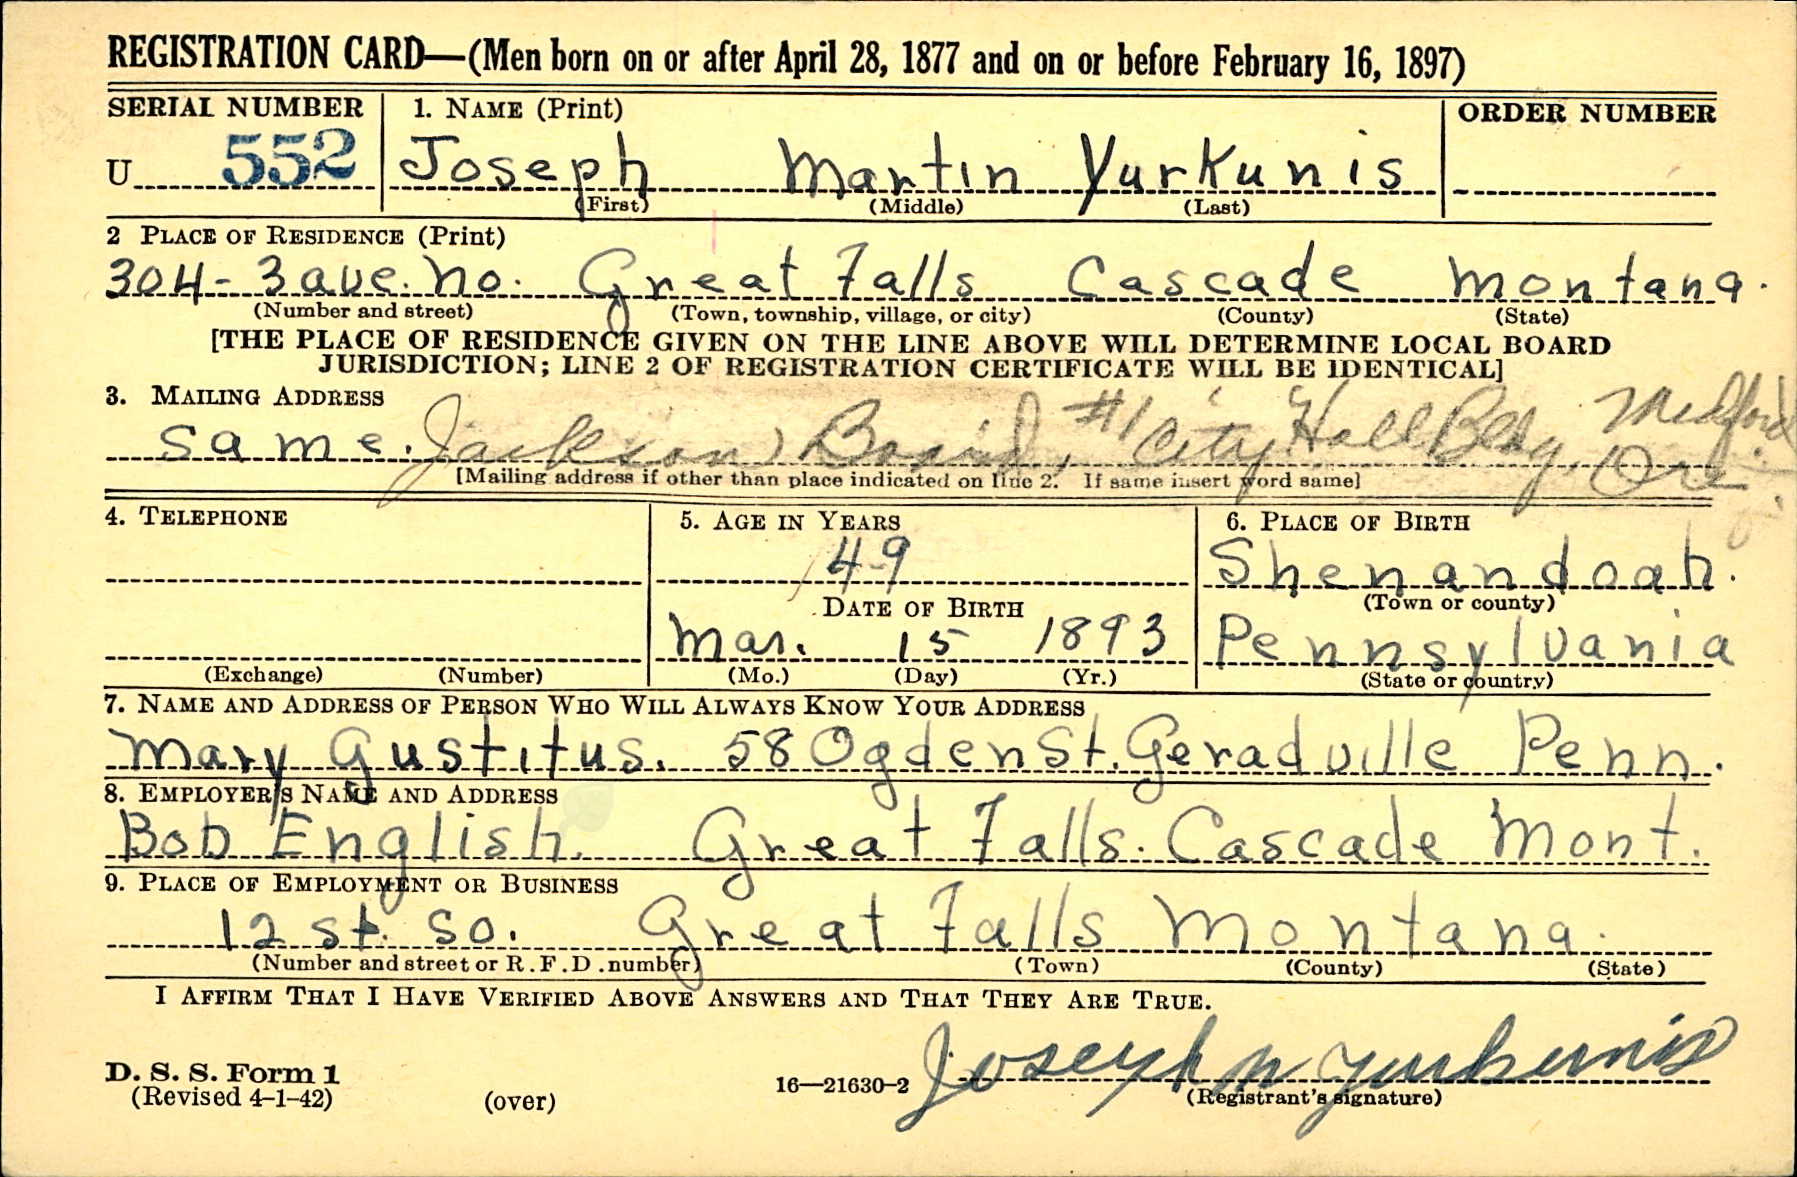 REGISTRATION CARD—(Men born on or after April 28, 1877 and on or before February 16, 1897)
SERIAL NUMBER 1. NAME (Print) ORDER NUMBER
U 552 Joseph Martin Yurkunis
(First) (Middle) (Last)
2 PLACE OF RESIDENCE (Print)
304- 3 ave. No. Great Falls Cascade Montana.
(Number and street) (Town, township, village, or city) (County) (State)
[THE PLACE OF RESIDENCE GIVEN ON THE LINE ABOVE WILL DETERMINE LOCAL BOARD
JURISDICTION; LINE 2 OF REGISTRATION CERTIFICATE WILL BE IDENTICAL]
3. MAILING ADDRESS
Same. Jackson Board, #1 City Hall Bldg. Medford Ore.
[Mailing address if other than place indicated on line 2. If same insert word same]
4. TELEPHONE 5. AGE IN YEARS 6. PLACE OF BIRTH
49 Shenandoah.
DATE OF BIRTH (Town or county)
Mar. 15 1893 Pennsylvania
(Exchange) (Number) (Mo.) (Day) (Yr.) (State or country)
7. NAME AND ADDRESS OF PERSON WHO WILL ALWAYS KNOW YOUR ADDRESS
Mary Gustitus. 58 Ogden St. Geradville Penn.
8. EMPLOYER'S NAME AND ADDRESS
Bob English. Great Falls. Cascade Mont.
9. PLACE OF EMPLOYMENT OR BUSINESS
12 st. So. Great Falls Montana.
(Number and street or R.F.D. number) (Town) (County) (State)
I AFFIRM THAT I HAVE VERIFIED ABOVE ANSWERS AND THAT THEY ARE TRUE.
Joseph M Yurkunis
D. S. S. Form 1
(Revised 4-1-42) (over) 16—21630-2 (Registrant's signature)